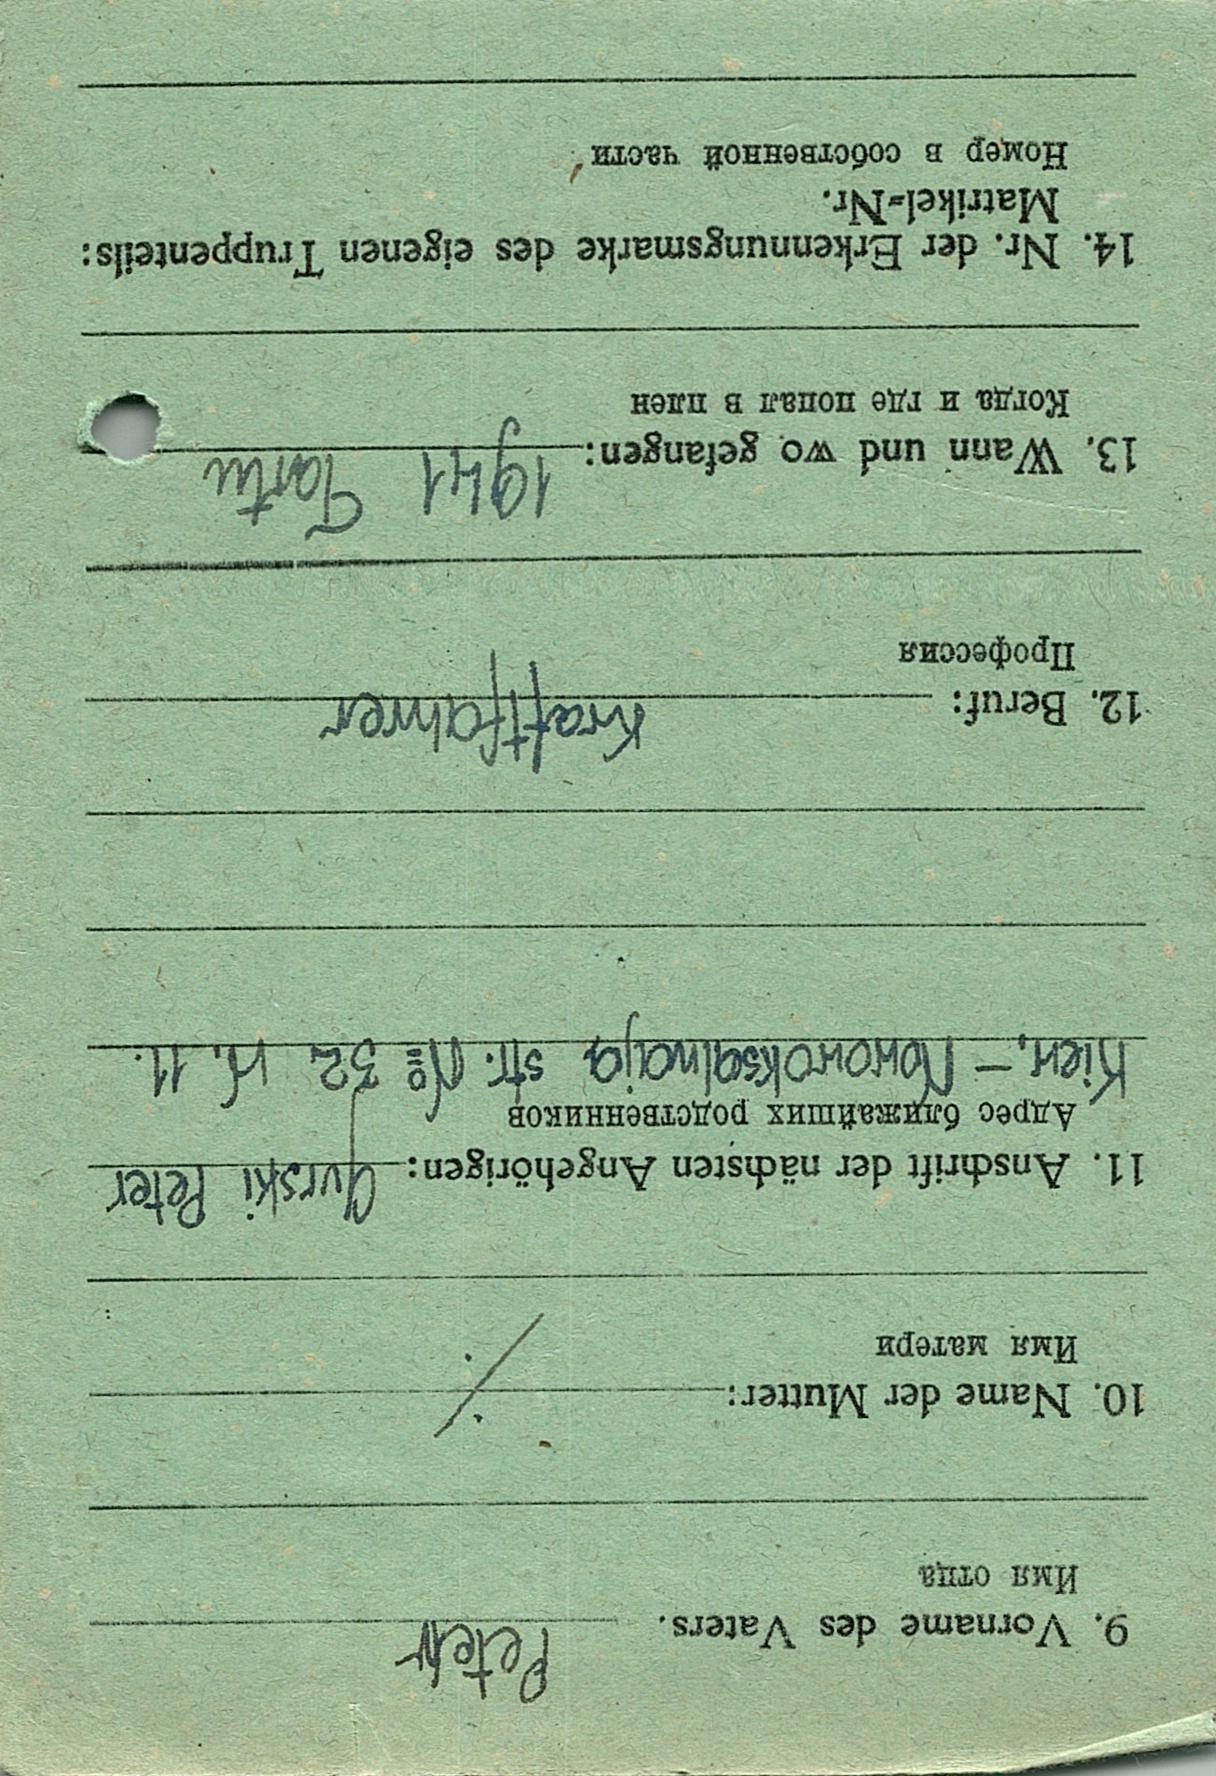 9. Vorname des Vaters. Peter
Имя отца
10. Name der Mutter: ⁒
Имя матери
11. Anschrift der nächsten Angehörigen: Gurski Peter
Адрес ближайших родственников
Kiew, – Nowowoksalnaja str. № 32 k. 11.
12. Beruf: Kraftfahrer
Профессия
13. Wann und wo gefangen: 1941 Tartu
Когда и где попал в плен
14. Nr. der Erkennungsmarke des eigenen Truppenteils:
Matrikel-Nr.
Номер в собственной части